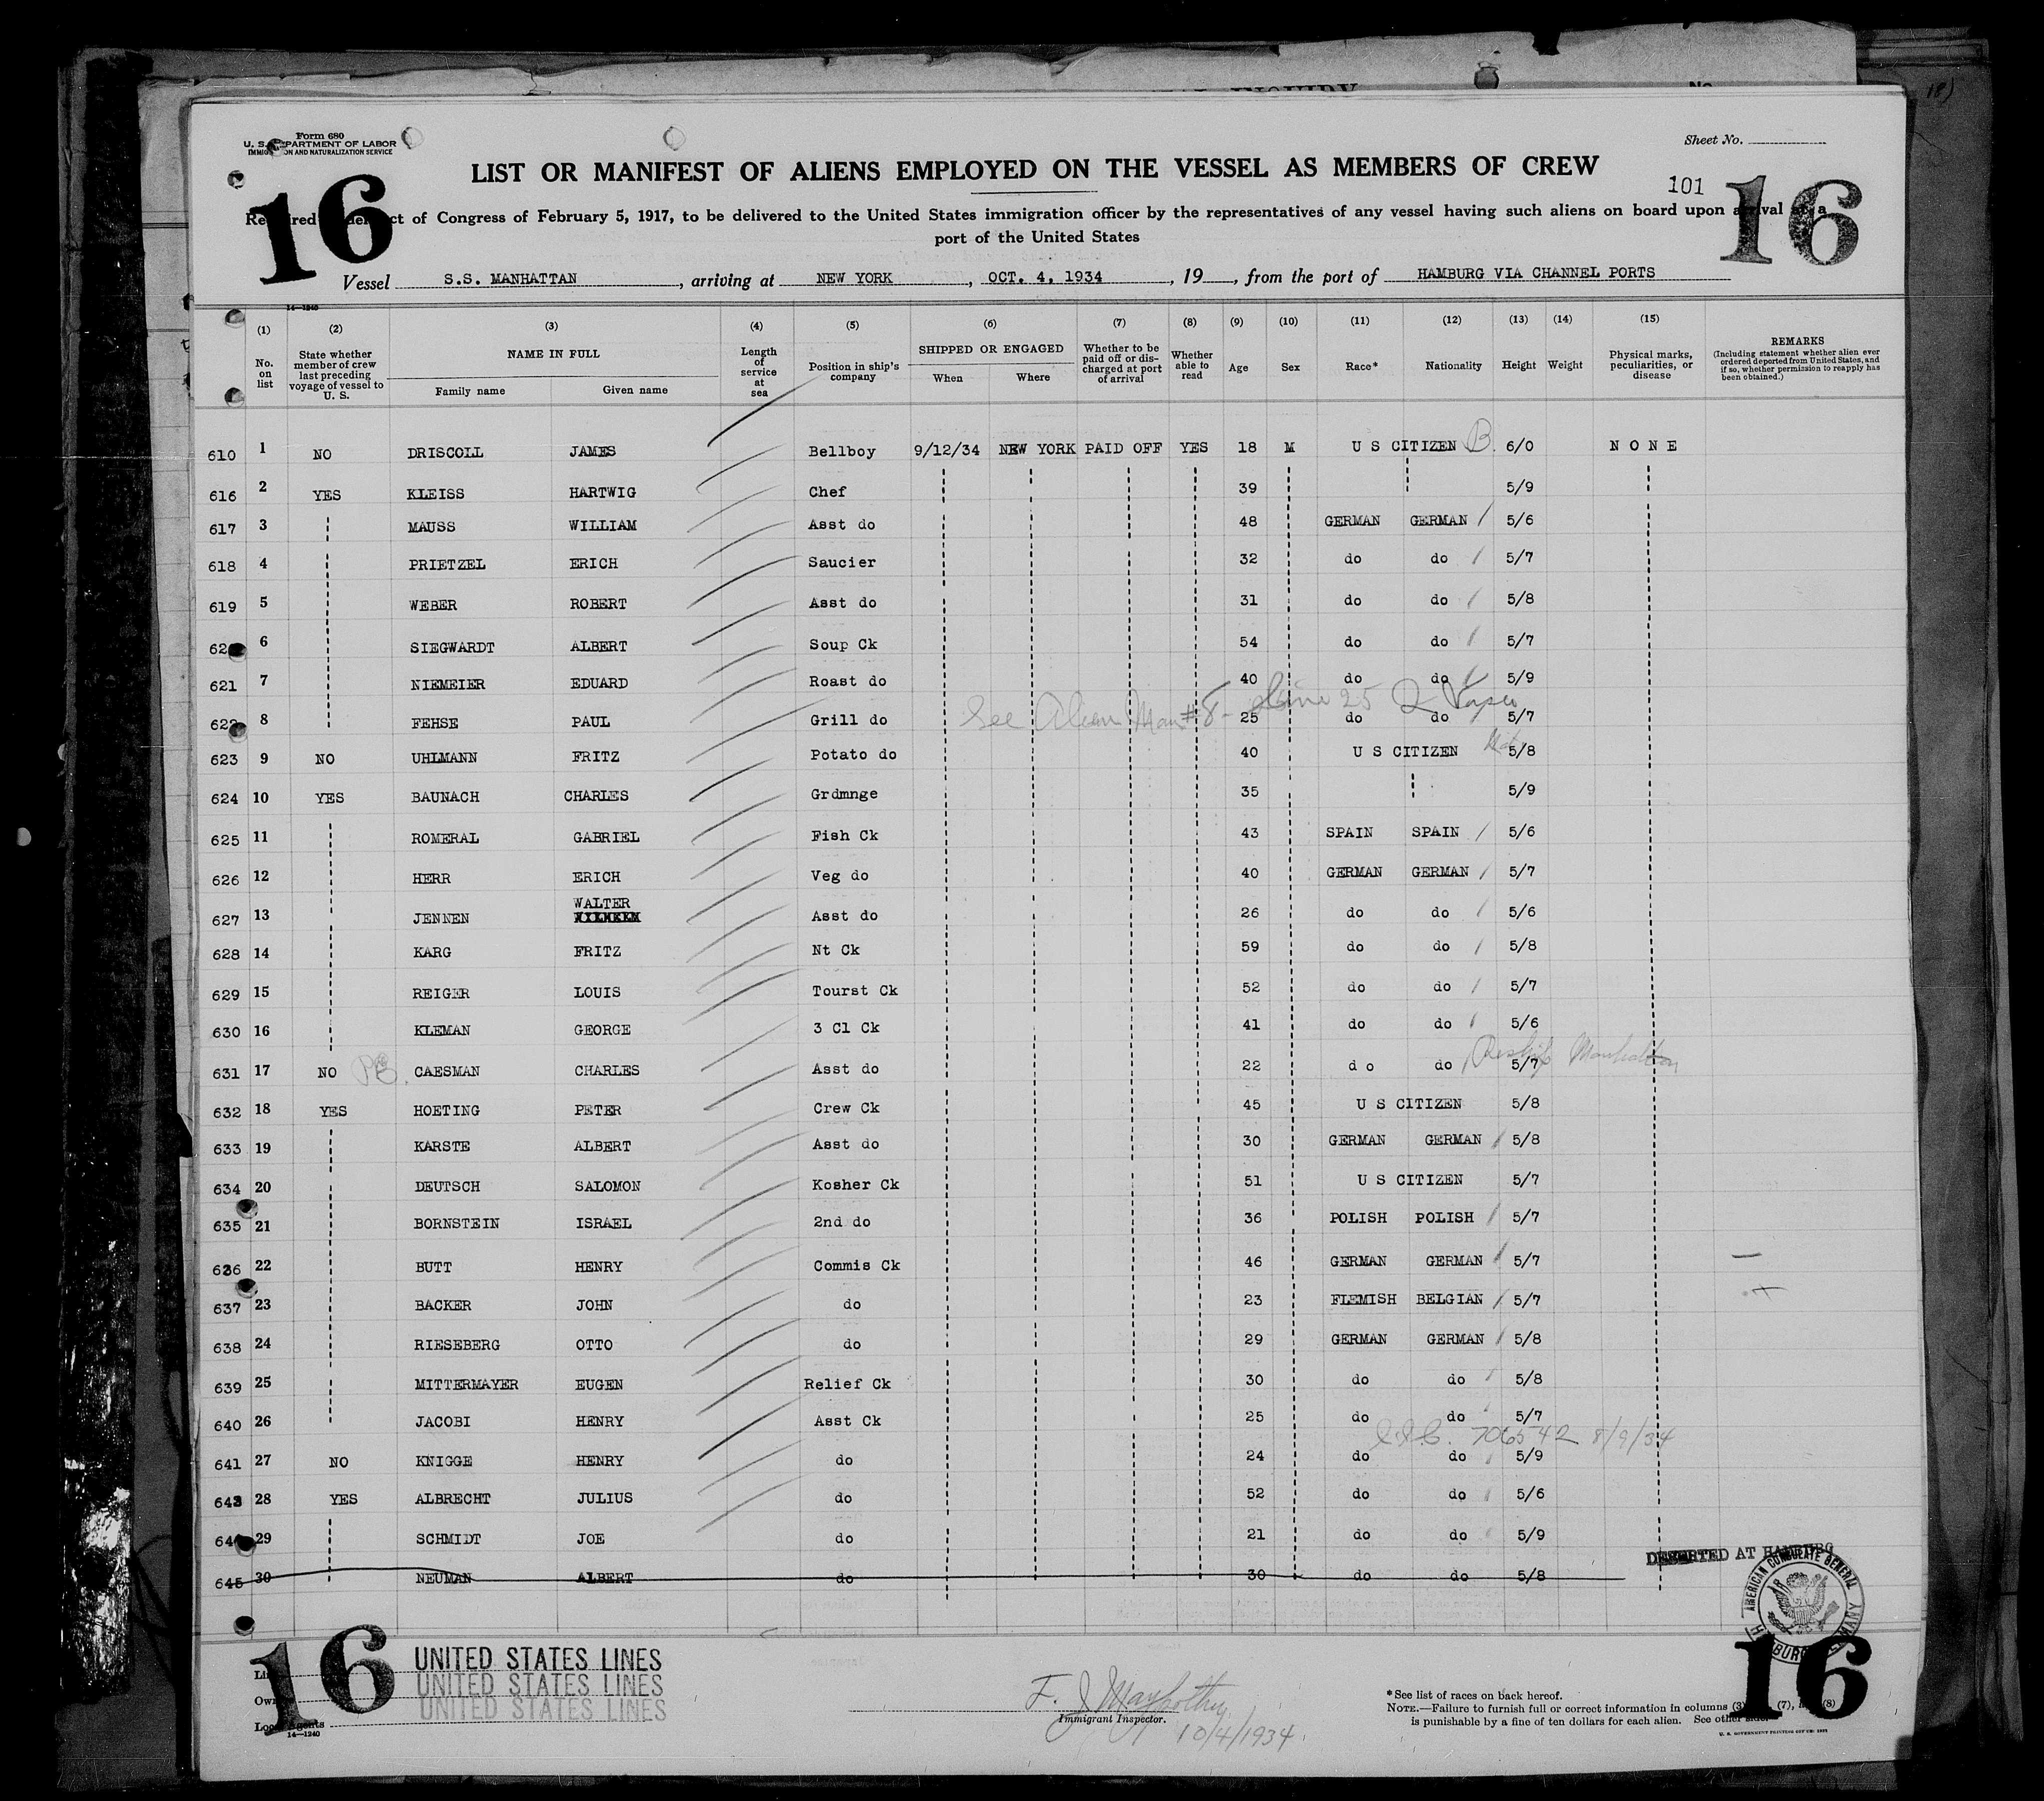 Form 680
U. S. DEPARTMENT OF LABOR
IMMIGRATION AND NATURALIZATION SERVICE
Sheet No.
LIST OR MANIFEST OF ALIENS EMPLOYED ON THE VESSEL AS MEMBERS OF CREW
16 101 16
Required under Act of Congress of February 5, 1917, to be delivered to the United States immigration officer by the representatives of any vessel having such aliens on board upon arrival at a
port of the United States
Vessel S.S. MANHATTAN, arriving at NEW YORK, OCT. 4, 1934, 19, from the port of HAMBURG VIA CHANNEL PORTS
14—1240
(1) No. on list (2) State whether member of crew last preceding voyage of vessel to U. S. (3) NAME IN FULL Family name Given name (4) Length of service at sea (5) Position in ship's company (6) SHIPPED OR ENGAGED When Where (7) Whether to be paid off or discharged at port of arrival (8) Whether able to read (9) Age (10) Sex (11) Race* (12) Nationality (13) Height (14) Weight (15) Physical marks, peculiarities, or disease REMARKS (Including statement whether alien ever ordered deported from United States, and if so, whether permission to reapply has been obtained.)
610 1 NO DRISCOLL JAMES Bellboy 9/12/34 NEW YORK PAID OFF YES 18 M U S CITIZEN B. 6/0 N O N E
616 2 YES KLEISS HARTWIG Chef 39 5/9
617 3 MAUSS WILLIAM Asst do 48 GERMAN GERMAN 5/6
618 4 PRIETZEL ERICH Saucier 32 do do 5/7
619 5 WEBER ROBERT Asst do 31 do do 5/8
62 6 SIEGWARDT ALBERT Soup Ck 54 do do 5/7
621 7 NIEMEIER EDUARD Roast do 40 do do 5/9
See Alien Man #8 - Line 25
622 8 FEHSE PAUL Grill do 25 do do 5/7
623 9 NO UHLMANN FRITZ Potato do 40 U S CITIZEN 5/8
624 10 YES BAUNACH CHARLES Grdmnge 35 5/9
625 11 ROMERAL GABRIEL Fish Ck 43 SPAIN SPAIN 5/6
626 12 HERR ERICH Veg do 40 GERMAN GERMAN 5/7
627 13 JENNEN WALTER Asst do 26 do do 5/6
628 14 KARG FRITZ Nt Ck 59 do do 5/8
629 15 REIGER LOUIS Tourst Ck 52 do do 5/7
630 16 KLEMAN GEORGE 3 Cl Ck 41 do do 5/6
Reship Manhattan
631 17 NO CAESMAN CHARLES Asst do 22 d o do 5/7
632 18 YES HOETING PETER Crew Ck 45 U S CITIZEN 5/8
633 19 KARSTE ALBERT Asst do 30 GERMAN GERMAN 5/8
634 20 DEUTSCH SALOMON Kosher Ck 51 U S CITIZEN 5/7
635 21 BORNSTEIN ISRAEL 2nd do 36 POLISH POLISH 5/7
636 22 BUTT HENRY Commis Ck 46 GERMAN GERMAN 5/7
637 23 BACKER JOHN do 23 FLEMISH BELGIAN 5/7
638 24 RIESEBERG OTTO do 29 GERMAN GERMAN 5/8
639 25 MITTERMAYER EUGEN Relief Ck 30 do do 5/8
640 26 JACOBI HENRY Asst Ck 25 do do 5/7
706542 8/9/34
641 27 NO KNIGGE HENRY do 24 do do 5/9
643 28 YES ALBRECHT JULIUS do 52 do do 5/6
64 29 SCHMIDT JOE do 21 do do 5/9
645 30 NEUMAN ALBERT do 30 do do 5/8 DESERTED AT HAMBURG
AMERICAN CONSULATE GENERAL
HAMBURG GERMANY
16 16
UNITED STATES LINES
UNITED STATES LINES
UNITED STATES LINES
Owners
Local Agents
14—1240
Immigrant Inspector.
10/4/1934.
*See list of races on back hereof.
NOTE.—Failure to furnish full or correct information in columns (3), (7), (8)
is punishable by a fine of ten dollars for each alien. See other side.
U. S. GOVERNMENT PRINTING OFFICE: 1931